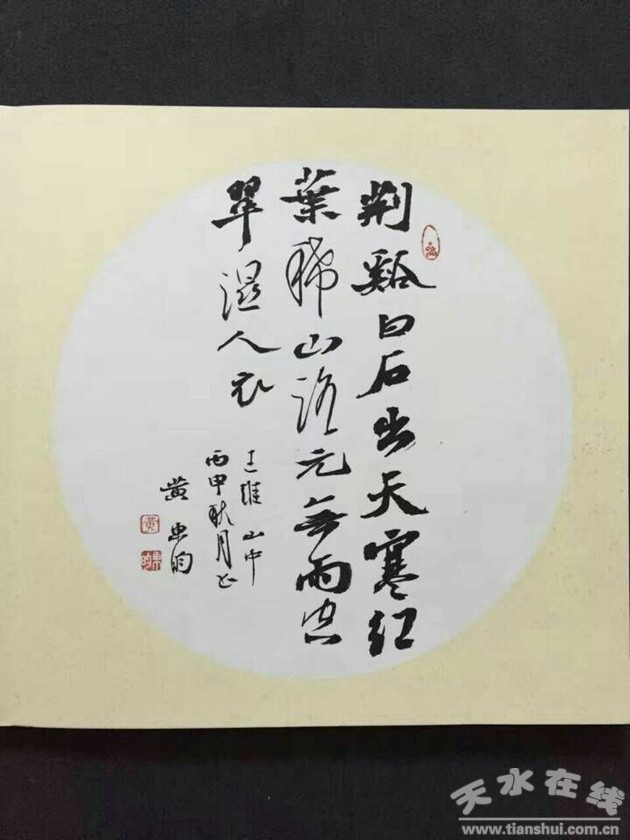 荆谿白石出天寒红
葉稀山路元無雨空
翠湿人衣
王維 山中
丙申秋月书
黄
天水在线
www.tianshui.com.cn